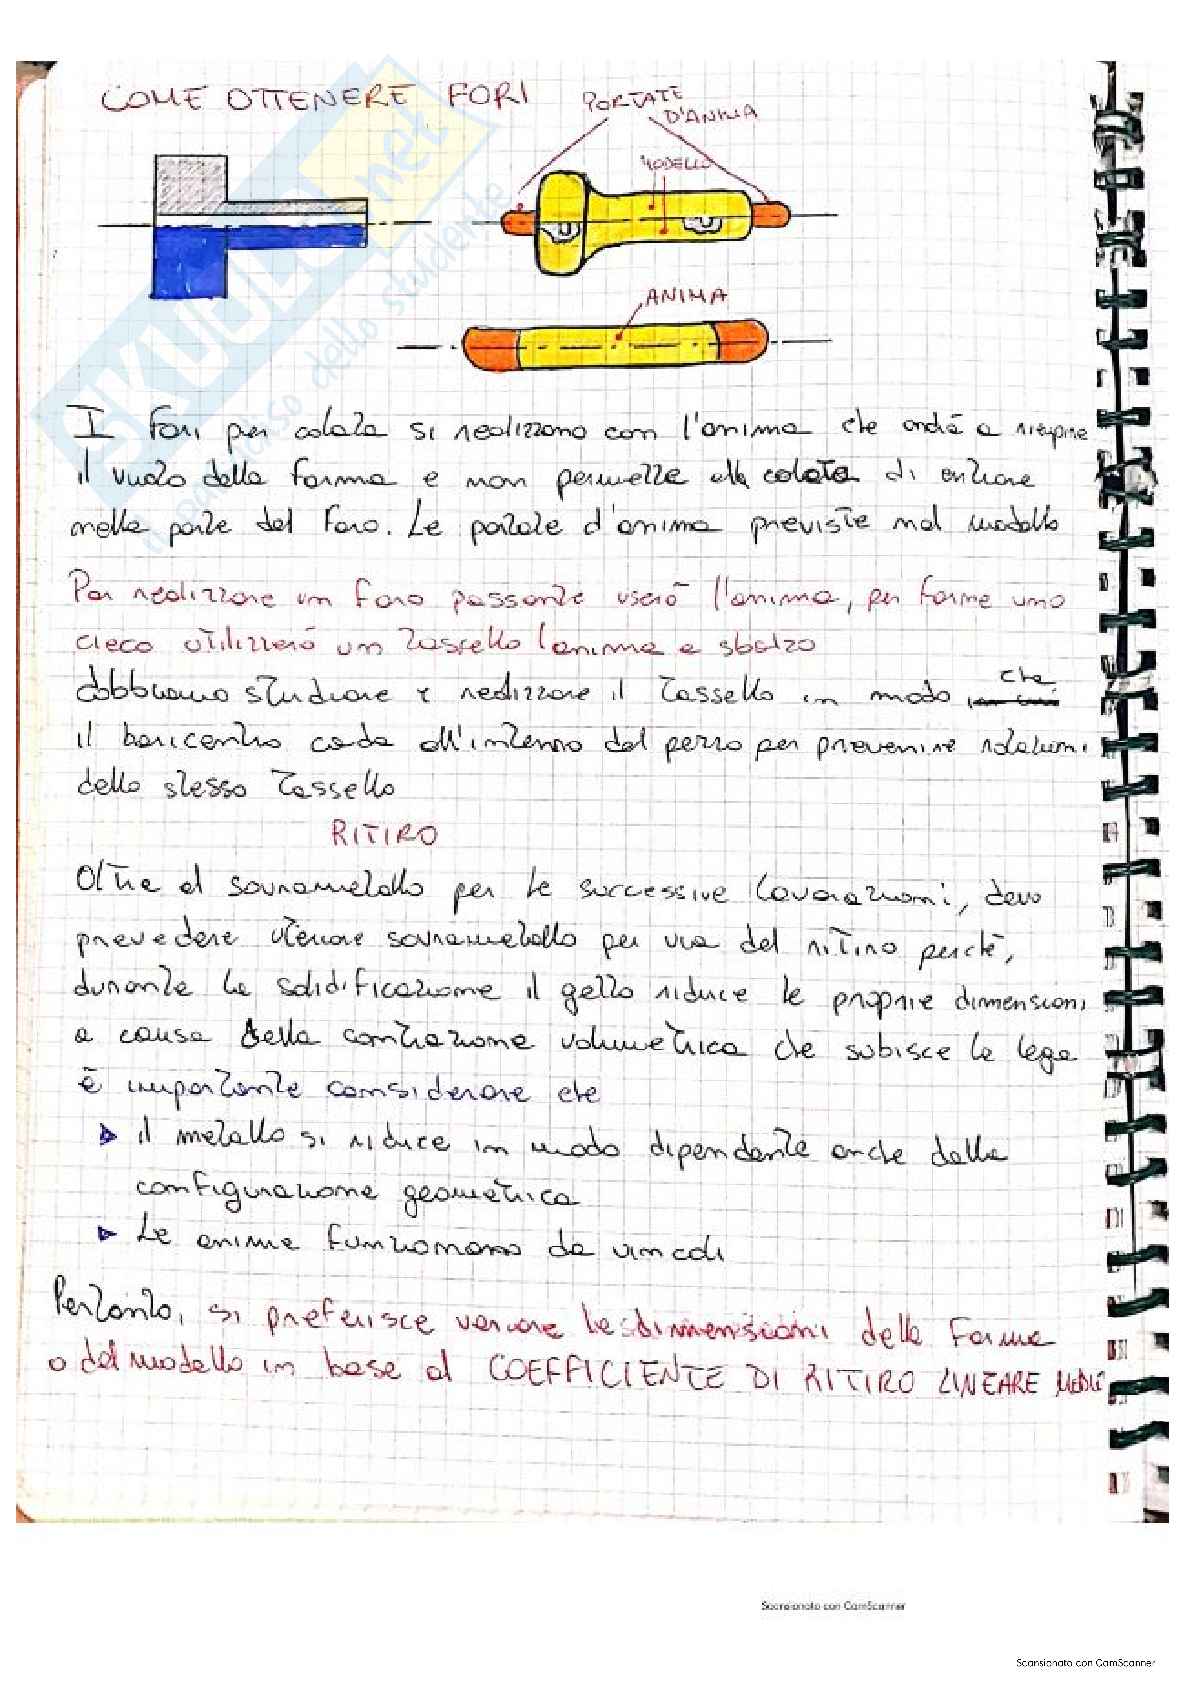 COME OTTENERE FORI
PORTATE
D'ANIMA
MODELLO
ANIMA
I fori per colata si realizzano con l'anima che andrà a riempire
il vuoto della forma e non permette alla colata di entrare
nella parte del foro. Le portate d'anima previste nel modello
Per realizzare un foro passante userò l'anima, per farne uno
cieco utilizzerò un tassello l'anima a sbalzo
dobbiamo studiare e realizzare il tassello in modo che
il baricentro cada all'interno del pezzo per prevenire rotazioni
dello stesso tassello
RITIRO
Oltre al sovrametallo per le successive lavorazioni, devo
prevedere ulteriore sovrametallo per via del ritiro perchè,
durante la solidificazione il getto riduce le proprie dimensioni
a causa della contrazione volumetrica che subisce la lega
è importante considerare che
il metallo si riduce in modo dipendente anche dalla
configurazione geometrica
Le anime funzionano da vincoli
Pertanto, si preferisce variare le dimensioni della forma
o del modello in base al COEFFICIENTE DI RITIRO LINEARE MEDIO
SKUOLA.net
il paradiso dello studente
Scansionato con CamScanner
Scansionato con CamScanner